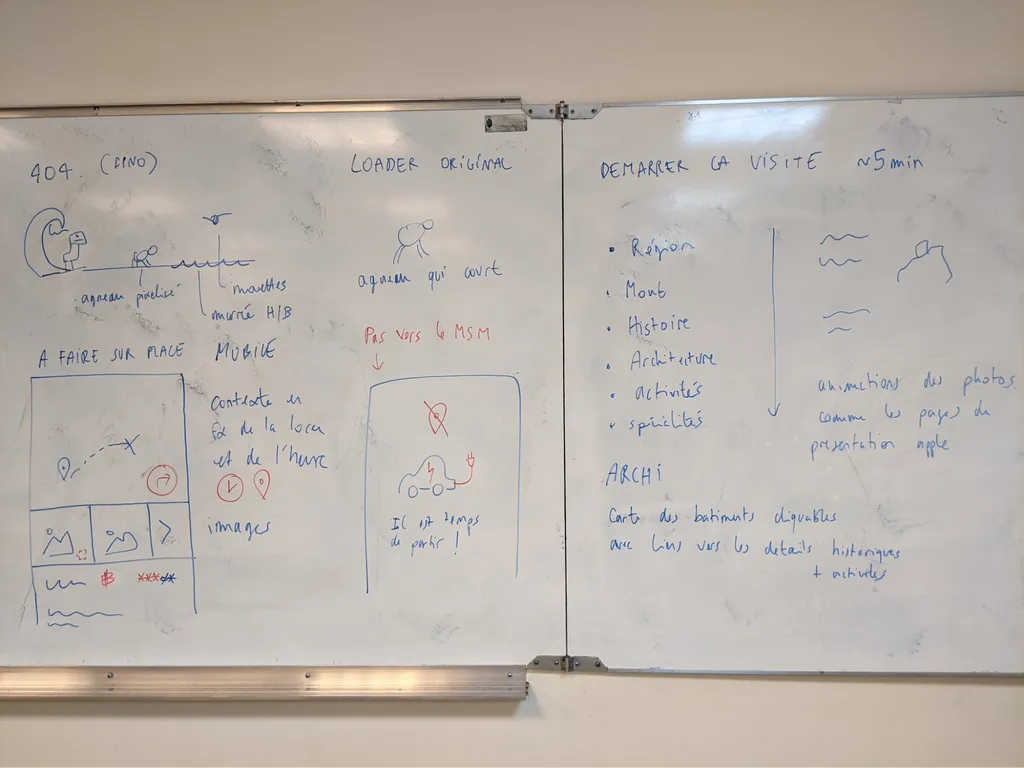 404. (DINO)
agneau pixelisé
mouettes
marée H/B
LOADER ORIGINAL
agneau qui court
A FAIRE SUR PLACE
MOBILE
contexte en
de la loca
et de l'heure
images
Pas vers le MSM
Il est temps
de partir !
DEMARRER LA VISITE ~5min
• Région
• Mont
• Histoire
• Architecture
• activités
• spécialités
animations des photos
comme les pages de
présentation apple
ARCHI
Carte des batiments cliquables
avec liens vers les détails historiques
+ activités